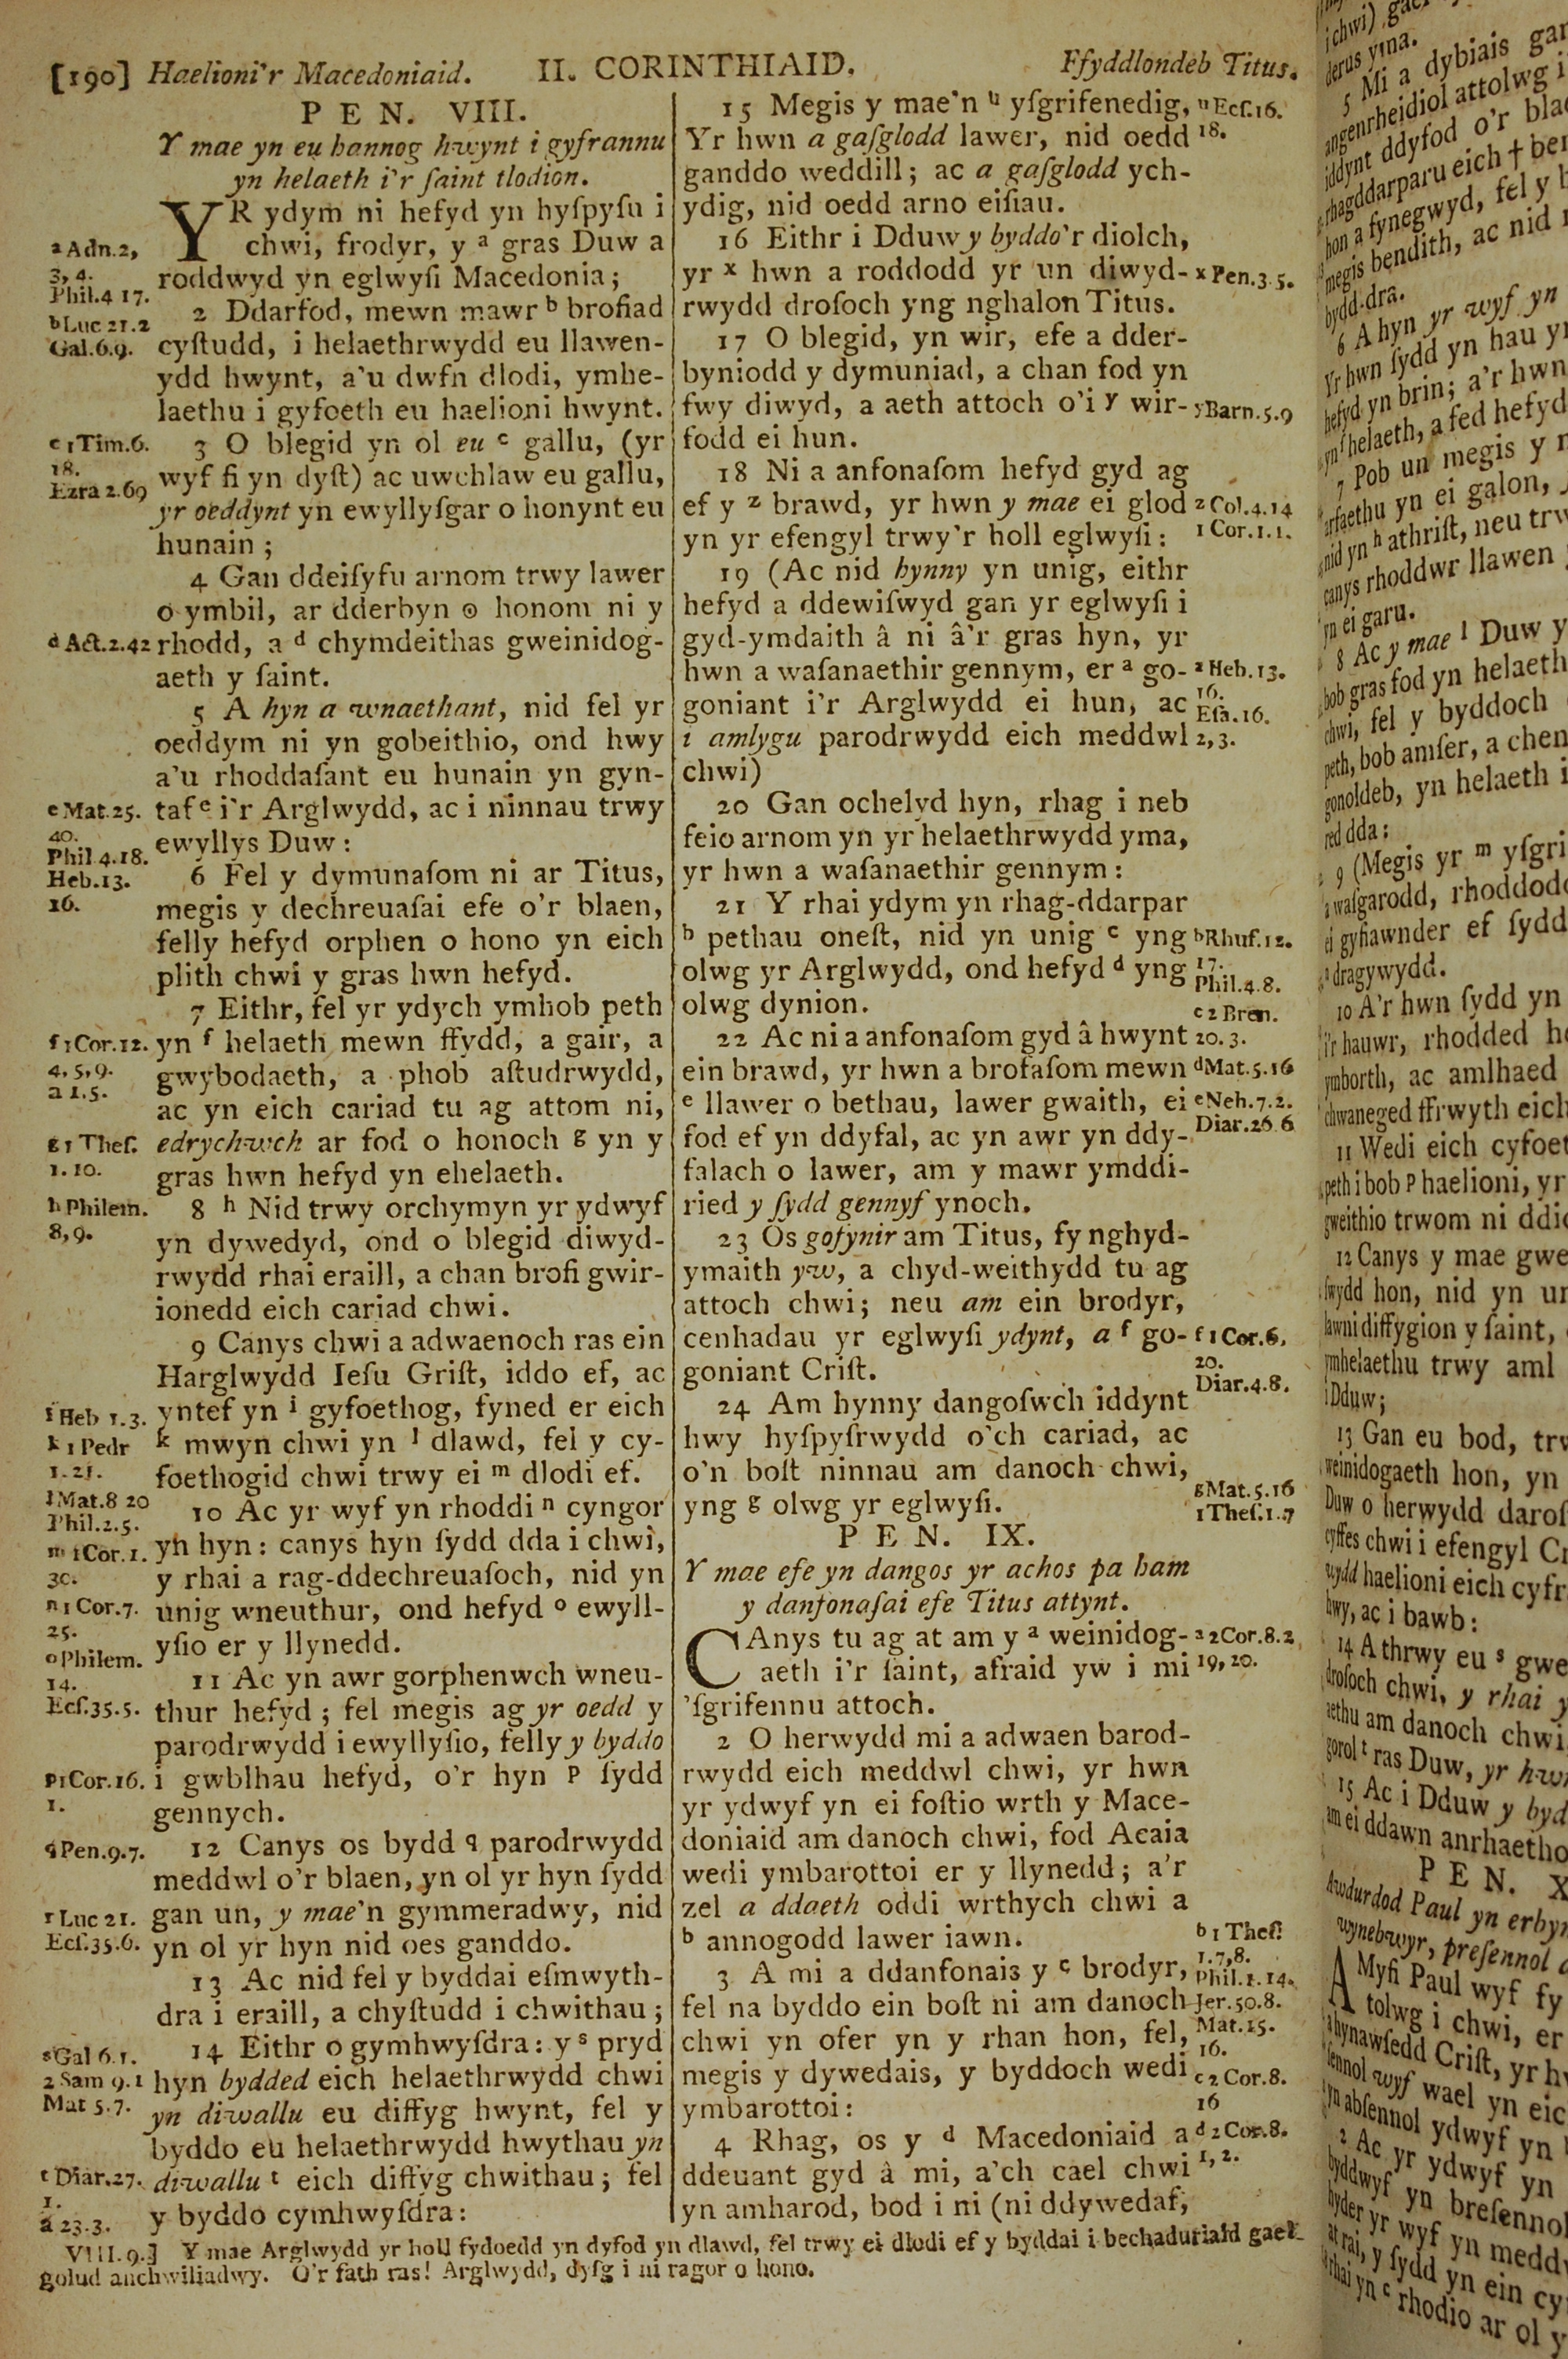 [190] Haelioni'r Macedoniaid. II. CORINTHIAID. Ffyddlondeb Titus.
PEN. VIII.
Y mae yn eu hannog hwynt i gyfrannu
yn helaeth i'r ſaint tlodion.
YR ydym ni hefyd yn hyſpyſu i
chwi, frodyr, y ᵃ gras Duw a
roddwyd yn eglwyſi Macedonia;
2 Ddarfod, mewn mawr ᵇ brofiad
cyſtudd, i helaethrwydd eu llawen-
ydd hwynt, a'u dwfn dlodi, ymhe-
laethu i gyfoeth eu haelioni hwynt.
3 O blegid yn ol eu ᶜ gallu, (yr
wyf fi yn dyſt) ac uwchlaw eu gallu,
yr oeddynt yn ewyllyſgar o honynt eu
hunain;
4 Gan ddeiſyfu arnom trwy lawer
o ymbil, ar dderbyn o honom ni y
rhodd, a ᵈ chymdeithas gweinidog-
aeth y ſaint.
5 A hyn a wnaethant, nid fel yr
oeddym ni yn gobeithio, ond hwy
a'u rhoddaſant eu hunain yn gyn-
taf ᵉ i'r Arglwydd, ac i ninnau trwy
ewyllys Duw:
6 Fel y dymunaſom ni ar Titus,
megis y dechreuaſai efe o'r blaen,
felly hefyd orphen o hono yn eich
plith chwi y gras hwn hefyd.
7 Eithr, fel yr ydych ymhob peth
yn ᶠ helaeth mewn ffydd, a gair, a
gwybodaeth, a phob aſtudrwydd,
ac yn eich cariad tu ag attom ni,
edrychwch ar fod o honoch ᵍ yn y
gras hwn hefyd yn ehelaeth.
8 ʰ Nid trwy orchymyn yr ydwyf
yn dywedyd, ond o blegid diwyd-
rwydd rhai eraill, a chan brofi gwir-
ionedd eich cariad chwi.
9 Canys chwi a adwaenoch ras ein
Harglwydd Ieſu Griſt, iddo ef, ac
yntef yn ⁱ gyfoethog, fyned er eich
ᵏ mwyn chwi yn ˡ dlawd, fel y cy-
foethogid chwi trwy ei ᵐ dlodi ef.
10 Ac yr wyf yn rhoddi ⁿ cyngor
yn hyn: canys hyn ſydd dda i chwi,
y rhai a rag-ddechreuaſoch, nid yn
unig wneuthur, ond hefyd ᵒ ewyll-
yſio er y llynedd.
11 Ac yn awr gorphenwch wneu-
thur hefyd; fel megis ag yr oedd y
parodrwydd i ewyllyſio, felly y byddo
i gwblhau hefyd, o'r hyn ᵖ ſydd
gennych.
12 Canys os bydd q parodrwydd
meddwl o'r blaen, yn ol yr hyn ſydd
gan un, y mae'n gymmeradwy, nid
yn ol yr hyn nid oes ganddo.
13 Ac nid fel y byddai eſmwyth-
dra i eraill, a chyſtudd i chwithau;
14 Eithr o gymhwyſdra: y ˢ pryd
hyn bydded eich helaethrwydd chwi
yn diwallu eu diffyg hwynt, fel y
byddo eu helaethrwydd hwythau yn
diwallu ᵗ eich diffyg chwithau; fel
y byddo cymhwyſdra:
ᵃAdn.2,
3,4.
Phil.4 17.
ᵇLuc 21.2
Gal.6.9.
ᶜ1Tim.6.
18.
Ezra 2.69
ᵈAct.2.42
ᵉMat.25.
40.
Phil 4.18.
Heb.13.
16.
ᶠ1Cor.12.
4,5,9.
a 1.5.
ᵍ1 Theſ.
1.10.
ʰPhilem.
8,9.
ⁱHeb 1.3.
ᵏ1 Pedr
1.21.
ˡMat.8 20
Phil.2.5.
ᵐ1Cor.1.
30.
ⁿ1 Cor.7.
25.
ᵒPhilem.
14.
Ecſ.35.5.
ᵖ1Cor.16.
1.
qPen.9.7.
ʳLuc 21.
Ecſ.35.6.
ˢGal 6.1.
2 Sam 9.1
Mat 5.7.
ᵗDiar.27.
1.
a 23.3.
15 Megis y mae'n ᵘ yſgrifenedig,
Yr hwn a gaſglodd lawer, nid oedd
ganddo weddill; ac a gaſglodd ych-
ydig, nid oedd arno eiſiau.
16 Eithr i Dduw y byddo'r diolch,
yr ˣ hwn a roddodd yr un diwyd-
rwydd droſoch yng nghalon Titus.
17 O blegid, yn wir, efe a dder-
byniodd y dymuniad, a chan fod yn
fwy diwyd, a aeth attoch o'i ʸ wir-
fodd ei hun.
18 Ni a anfonaſom hefyd gyd ag
ef y ᶻ brawd, yr hwn y mae ei glod
yn yr efengyl trwy'r holl eglwyſi:
19 (Ac nid hynny yn unig, eithr
hefyd a ddewiſwyd gan yr eglwyſi i
gyd-ymdaith â ni â'r gras hyn, yr
hwn a waſanaethir gennym, er ᵃ go-
goniant i'r Arglwydd ei hun, ac
i amlygu parodrwydd eich meddwl
chwi)
20 Gan ochelyd hyn, rhag i neb
feio arnom yn yr helaethrwydd yma,
yr hwn a waſanaethir gennym:
21 Y rhai ydym yn rhag-ddarpar
ᵇ pethau oneſt, nid yn unig ᶜ yng
olwg yr Arglwydd, ond hefyd ᵈ yng
olwg dynion.
22 Ac ni a anfonaſom gyd â hwynt
ein brawd, yr hwn a brofaſom mewn
ᵉ llawer o bethau, lawer gwaith, ei
fod ef yn ddyfal, ac yn awr yn ddy-
falach o lawer, am y mawr ymddi-
ried y ſydd gennyf ynoch.
23 Os gofynir am Titus, fy nghyd-
ymaith yw, a chyd-weithydd tu ag
attoch chwi; neu am ein brodyr,
cenhadau yr eglwyſi ydynt, a ᶠ go-
goniant Criſt.
24 Am hynny dangoſwch iddynt
hwy hyſpyſrwydd o'ch cariad, ac
o'n boſt ninnau am danoch chwi,
yng ᵍ olwg yr eglwyſi.
PEN. IX.
Y mae efe yn dangos yr achos pa ham
y danfonaſai efe Titus attynt.
CAnys tu ag at am y ᵃ weinidog-
aeth i'r ſaint, afraid yw i mi
'ſgrifennu attoch.
2 O herwydd mi a adwaen barod-
rwydd eich meddwl chwi, yr hwn
yr ydwyf yn ei foſtio wrth y Mace-
doniaid am danoch chwi, fod Acaia
wedi ymbarottoi er y llynedd; a'r
zel a ddaeth oddi wrthych chwi a
ᵇ annogodd lawer iawn.
3 A mi a ddanfonais y ᶜ brodyr,
fel na byddo ein boſt ni am danoch
chwi yn ofer yn y rhan hon, fel,
megis y dywedais, y byddoch wedi
ymbarottoi:
4 Rhag, os y ᵈ Macedoniaid a
ddeuant gyd â mi, a'ch cael chwi
yn amharod, bod i ni (ni ddywedaf,
ᵘEcſ.16.
18.
ˣPen.3.5.
ʸBarn.5.9
ᶻCol.4.14
1 Cor.1.1.
ᵃHeb.13.
16.
Eſa.16.
2,3.
ᵇRhuf.12.
17.
Phil.4.8.
ᶜ2 Bren.
20.3.
ᵈMat.5.16
ᵉNeh.7.2.
Diar.26 6
ᶠ1 Cor.6.
20.
Diar.4.8.
ᵍMat.5.16
1Theſ.1.7
ᵃ2Cor.8.2
19,20.
ᵇ1 Theſ.
1.7,8.
Phil.1.14.
Jer.50.8.
Mat.25.
16.
ᶜ2 Cor.8.
16
ᵈ2 Cor.8.
1,2.
VIII.9.] Y mae Arglwydd yr holl fydoedd yn dyfod yn dlawd, fel trwy ei dlodi ef y byddai i bechaduriaid gael
golud anchwiliadwy. O'r fath ras! Arglwydd, dyſg i ni ragor o hono.
5 Mi a dybiais
angenrheidiol attolwg i
iddynt ddyfod o'r
rhagddarparu eich †
hon a fynegwyd, fel y
megis bendith, ac nid
bydd-dra.
6 A hyn yr wyf yn
Yr hwn ſydd yn hau
hefyd yn brin; a'r hwn
helaeth, a fed hefyd
7 Pob un megis y
yn ei galon,
nid yn ʰ athriſt, neu
canys rhoddwr llawen
yn ei garu.
8 Ac y mae ˡ Duw
bob gras fod yn helaeth
chwi, fel y byddoch
peth, bob amſer, a
yn helaeth
dda:
9 (Megis yr ᵐ
rhoddodd
ei gyfiawnder ef ſydd
dragywydd.
10 A'r hwn ſydd yn
i'r hauwr, rhodded
ymborth, ac amlhaed
chwaneged ffrwyth
11 Wedi eich
peth i bob ᵖ haelioni, yr
gweithio trwom ni
12 Canys y mae
hon, nid yn
diffygion y ſaint,
ymhelaethu trwy aml
i Dduw;
13 Gan eu bod,
weinidogaeth hon, yn
Duw o herwydd
cyffes chwi i efengyl
haelioni eich
hwy, ac i bawb:
14 A thrwy eu ˢ
droſoch chwi, y rhai
am danoch chwi
ᵗ ras Duw, yr
15 Ac i Dduw y
am ei ddawn
PEN. X
Awdurdod Paul yn erbyn
preſennol
A Myfi Paul wyf fy
tolwg i chwi, er
Criſt, yr
wyf wael yn
yn abſennol ydwyf yn
2 Ac yr ydwyf yn
yn breſennol
hyder yr wyf yn
rai, y ſydd yn ein
yn ᶜ rhodio ar ol y